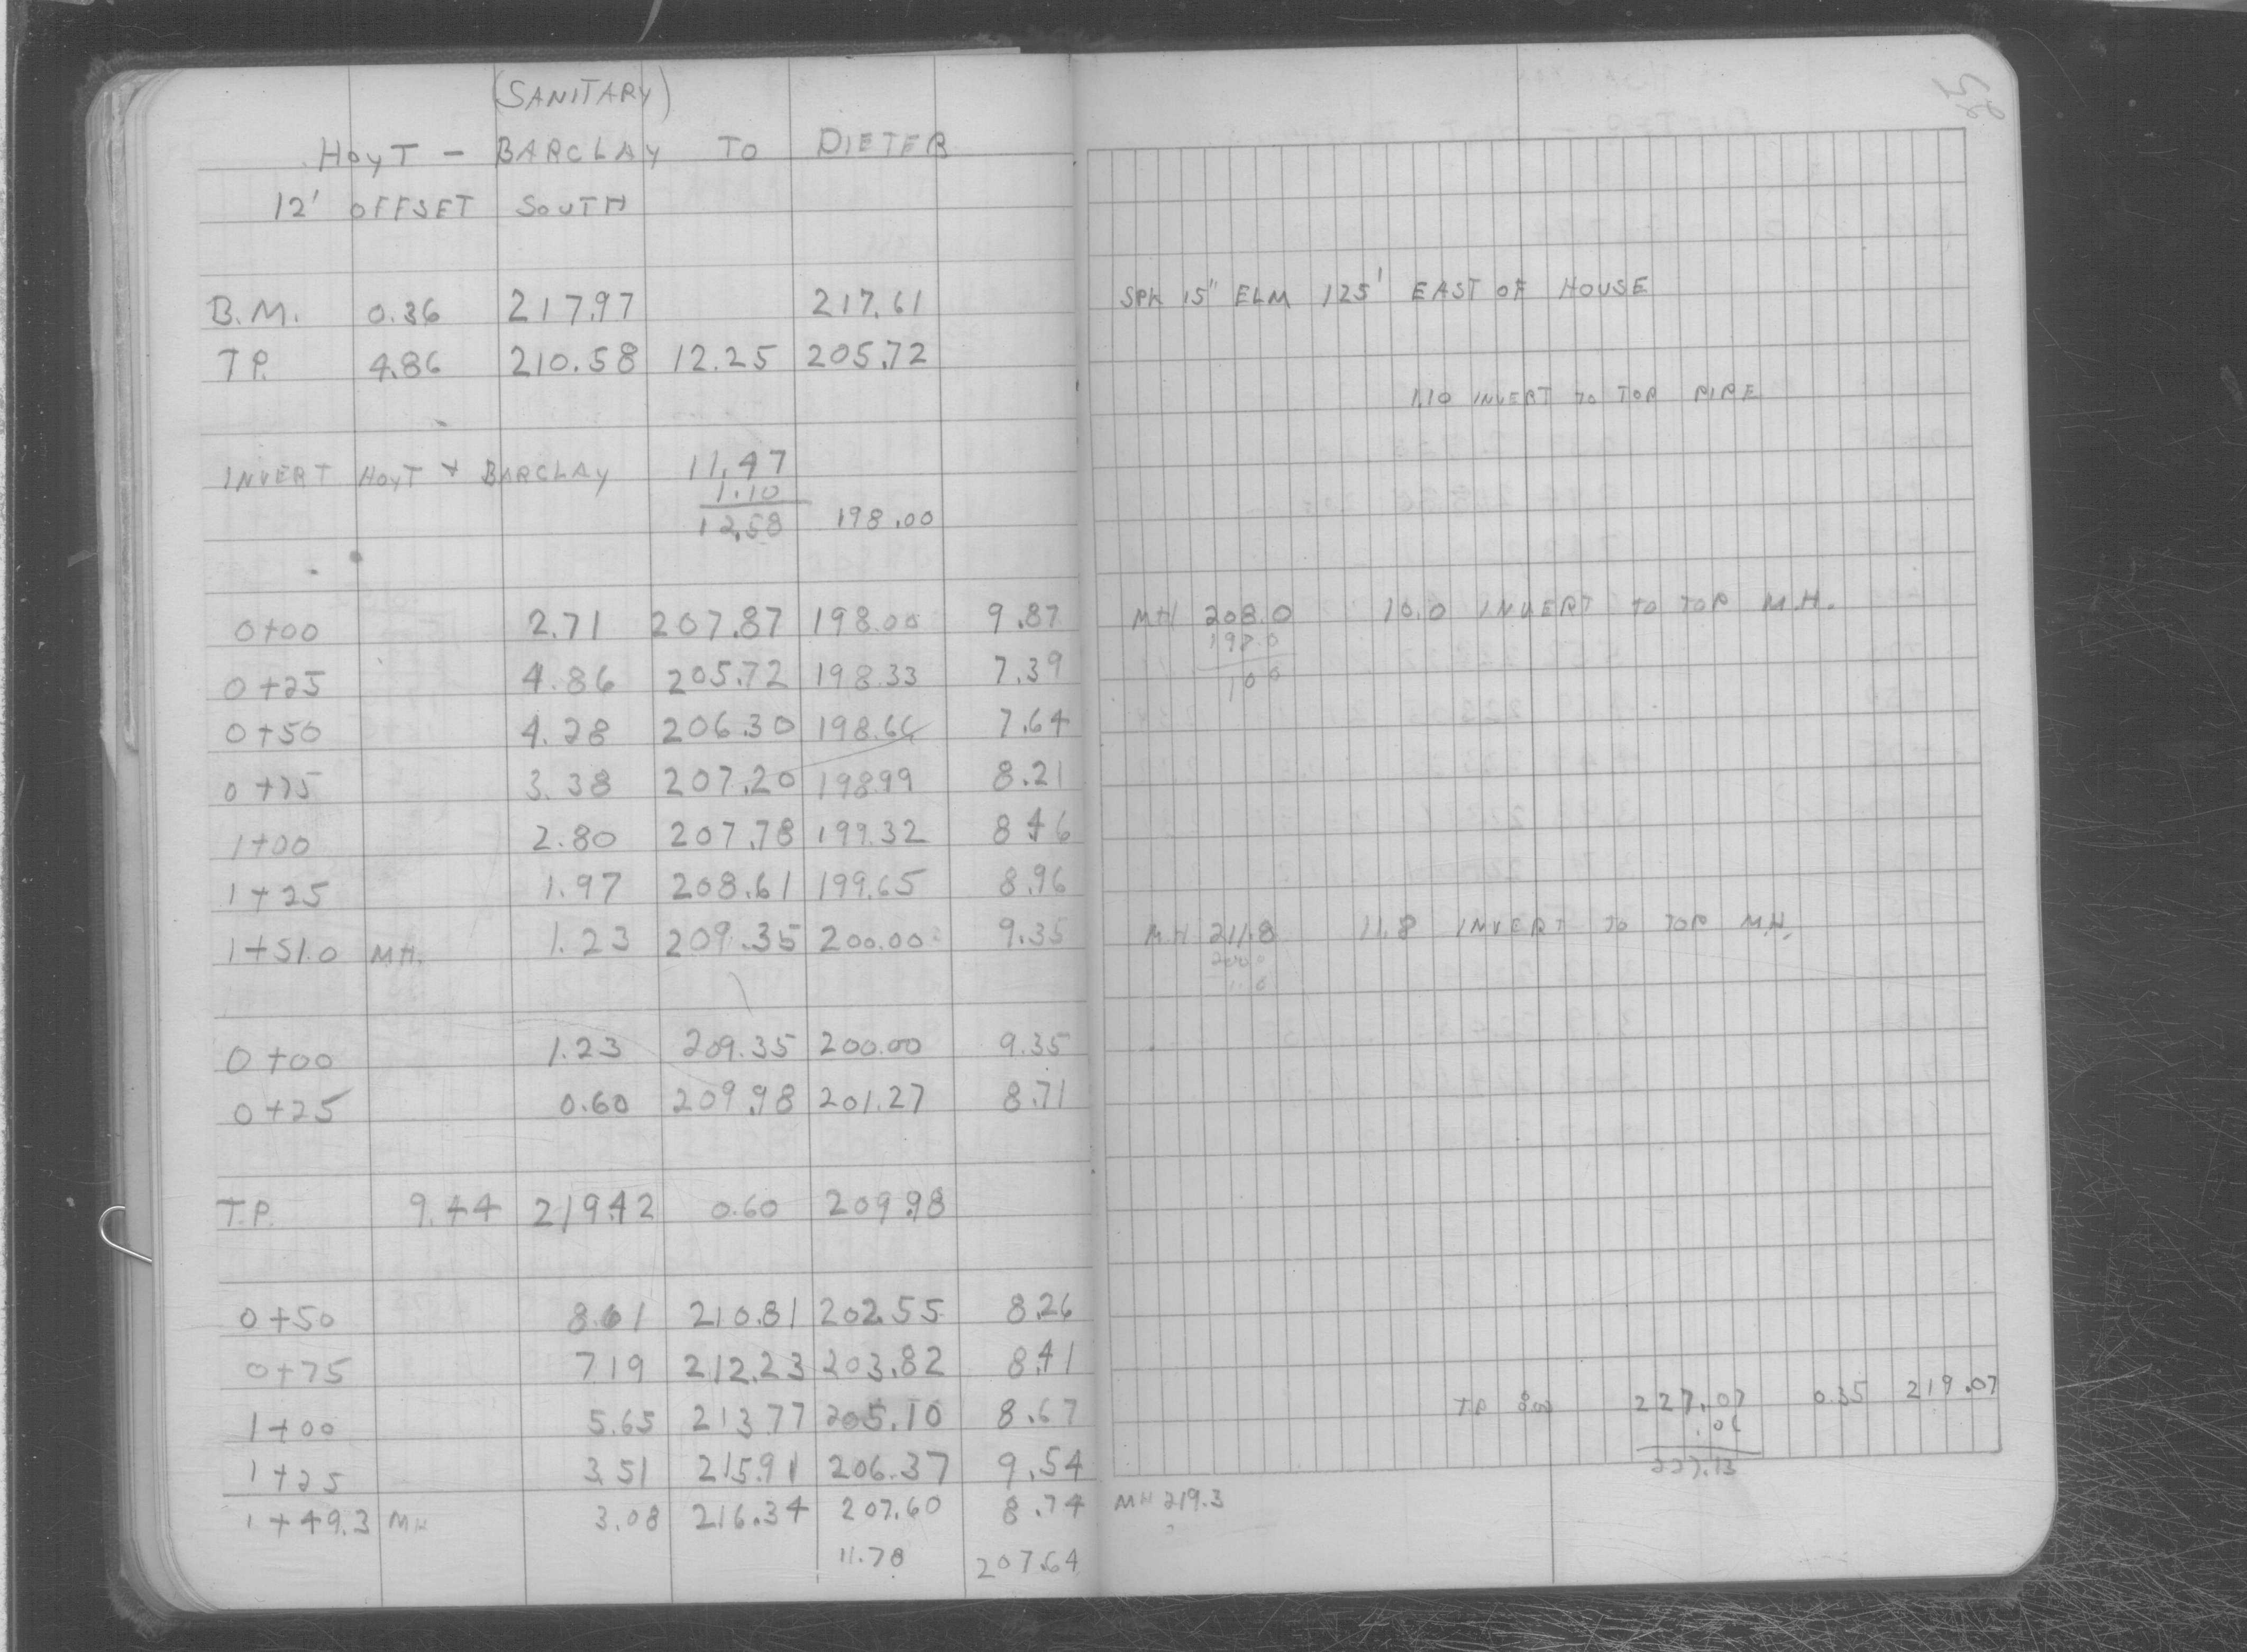 (SANITARY)
HOYT - BARCLAY TO DIETER
12' OFFSET SOUTH
B.M. 0.36 217.97 217.61
T.P. 4.86 210.58 12.25 205.72
INVERT HOYT + BARCLAY 11.47
1.10
12.58 198.00
0+00 2.71 207.87 198.00 9.87
0+25 4.86 205.72 198.33 7.39
0+50 4.28 206.30 198.66 7.64
0+75 3.38 207.20 198.99 8.21
1+00 2.80 207.78 199.32 8.46
1+25 1.97 208.61 199.65 8.96
1+51.0 M.H. 1.23 209.35 200.00 9.35
0+00 1.23 209.35 200.00 9.35
0+25 0.60 209.98 201.27 8.71
T.P. 9.44 219.42 0.60 209.98
0+50 8.61 210.81 202.55 8.26
0+75 7.19 212.23 203.82 8.41
1+00 5.65 213.77 205.10 8.67
1+25 3.51 215.91 206.37 9.54
1+49.3 MH 3.08 216.34 207.60 8.74
11.78 207.64
25
SPK 15" ELM 125' EAST OF HOUSE
1.10 INVERT TO TOP PIPE
MH 208.0 10.0 INVERT TO TOP M.H.
198.0
10 0
MH 211.8 11.8 INVERT TO TOP M.H.
200.0
TP 8.00 227.07 0.35 219.07
.06
227.13
MH 219.3